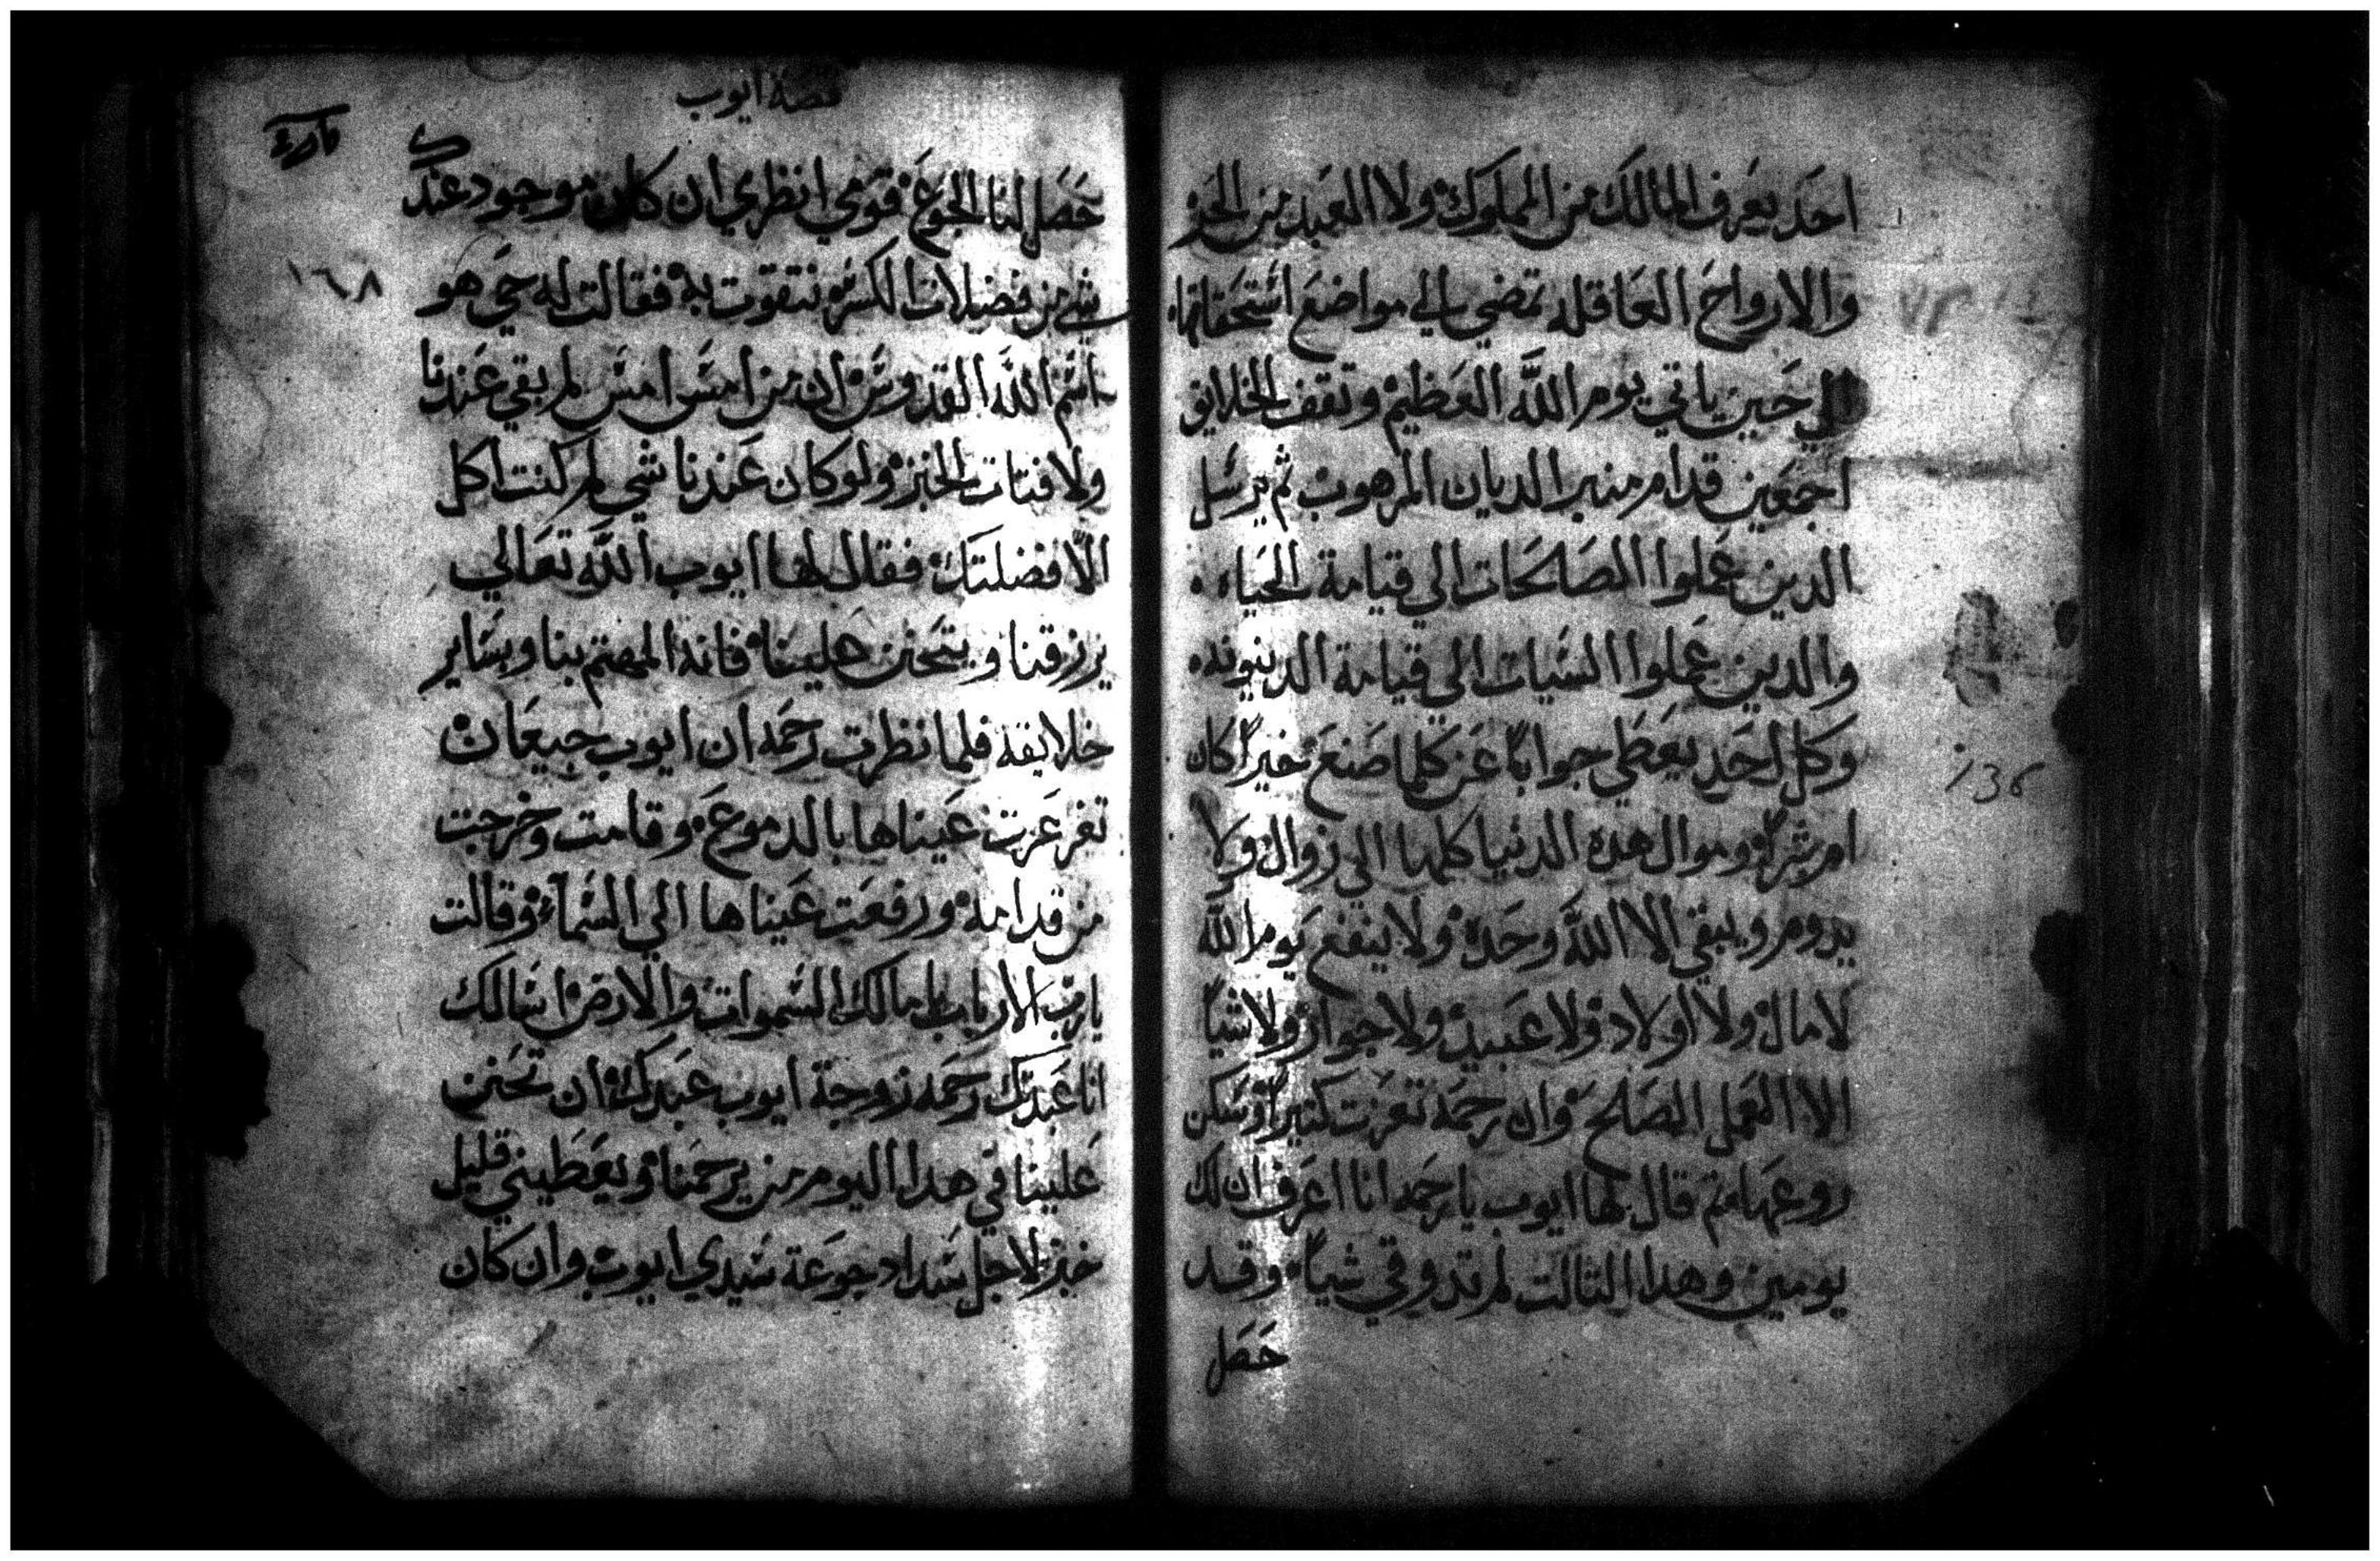 احد يعرف المالك من المملوك ولا العبد من الحر
والارواح العاقله تمضي الي مواضع استحقاقها
الي حين ياتي يوم الله العظيم وتقف الخلايق
اجمعين قدام منبر الديان المرهوب ثم يرسل
الدين عملوا الصالحات الي قيامة الحياه
والدين عملوا السيات الي قيامة الدينونه
وكل احد يعطي جوابا عن كلما صنع خيرا كان
ام شرا وموال هده الدنيا كلها الي زوال ولا
يدوم ويبقي الا الله وحده ولا ينفع يوم الله
لا مال ولا اولاد ولا عبيد ولا جوار ولا شيا
الا العمل الصالح وان رحمه تعزت كتيرا وسكن
روعها تم قال لها ايوب يا رحمه انا اعرف ان لك
يومين وهدا التالت لم تدوقي شيا وقد
حصل
١٣٥
قصة ايوب
حصل لنا الجوع قومي انظري ان كان موجود عندك
شي من فضلات الكسره نتقوت به فقالت له حي هو
اسم الله القدوس ان من امس امس لم بقي عندنا
ولا فتات الخبز ولو كان عندنا شي لم كنت اكل
الا فضلتك فقال لها ايوب الله تعالي
يرزقنا ويتحنن علينا فانه المهتم بنا وبساير
خلايقه فلما نظرت رحمه ان ايوب جيعان
تغرغرت عيناها بالدموع وقامت وخرجت
من قدامه ورفعت عيناها الي السماء وقالت
يا رب الارباب يا مالك السموات والارض اسالك
انا عبدتك رحمه زوجة ايوب عبدك ان تحنن
علينا في هدا اليوم من يرحمنا ويعطيني قليل
خبز لاجل سداد جوعة سيدي ايوب وان كان
١٦٨